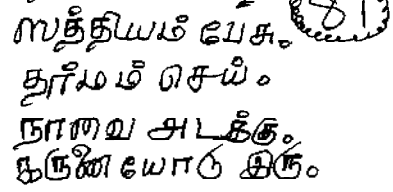 81
ஸத்தியம் பேசு.
தர்மம் செய்.
நாவை அடக்கு.
கருனையோடு இரு.